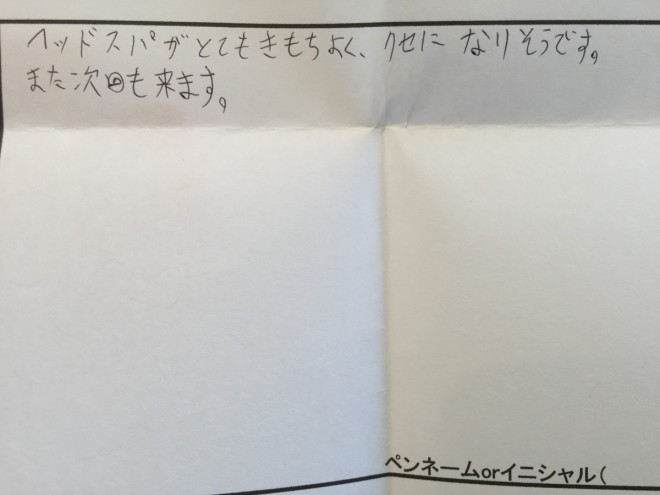 ヘッドスパがとてもきもちよく、クセになりそうです。
また次回も来ます。
ペンネームorイニシャル(